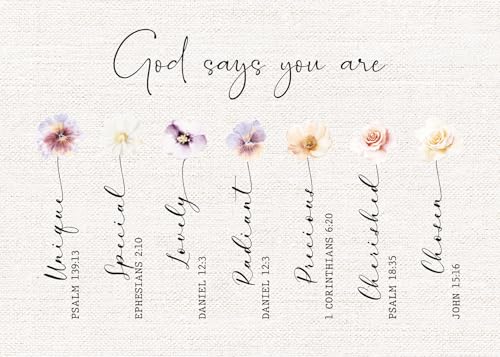 God says you are
Unique
PSALM 139:13
Special
EPHESIANS 2:10
Lovely
DANIEL 12:3
Radiant
DANIEL 12:3
Precious
1 CORINTHIANS 6:20
Cherished
PSALM 18:35
Chosen
JOHN 15:16